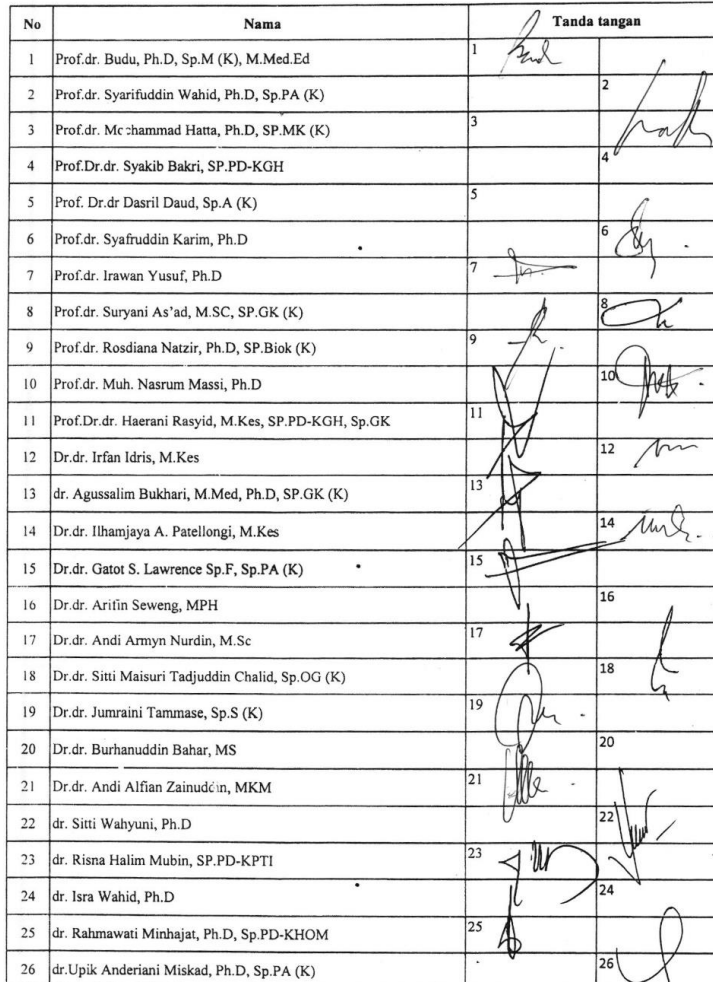 No Nama Tanda tangan
1 Prof.dr. Budu, Ph.D, Sp.M (K), M.Med.Ed 1
2 Prof.dr. Syarifuddin Wahid, Ph.D, Sp.PA (K) 2
3 Prof.dr. Mochammad Hatta, Ph.D, SP.MK (K) 3
4 Prof.Dr.dr. Syakib Bakri, SP.PD-KGH 4
5 Prof. Dr.dr Dasril Daud, Sp.A (K) 5
6 Prof.dr. Syafruddin Karim, Ph.D 6
7 Prof.dr. Irawan Yusuf, Ph.D 7
8 Prof.dr. Suryani As'ad, M.SC, SP.GK (K) 8
9 Prof.dr. Rosdiana Natzir, Ph.D, SP.Biok (K) 9
10 Prof.dr. Muh. Nasrum Massi, Ph.D 10
11 Prof.Dr.dr. Haerani Rasyid, M.Kes, SP.PD-KGH, Sp.GK 11
12 Dr.dr. Irfan Idris, M.Kes 12
13 dr. Agussalim Bukhari, M.Med, Ph.D, SP.GK (K) 13
14 Dr.dr. Ilhamjaya A. Patellongi, M.Kes 14
15 Dr.dr. Gatot S. Lawrence Sp.F, Sp.PA (K) 15
16 Dr.dr. Arifin Seweng, MPH 16
17 Dr.dr. Andi Armyn Nurdin, M.Sc 17
18 Dr.dr. Sitti Maisuri Tadjuddin Chalid, Sp.OG (K) 18
19 Dr.dr. Jumraini Tammase, Sp.S (K) 19
20 Dr.dr. Burhanuddin Bahar, MS 20
21 Dr.dr. Andi Alfian Zainuddin, MKM 21
22 dr. Sitti Wahyuni, Ph.D 22
23 dr. Risna Halim Mubin, SP.PD-KPTI 23
24 dr. Isra Wahid, Ph.D 24
25 dr. Rahmawati Minhajat, Ph.D, Sp.PD-KHOM 25
26 dr.Upik Anderiani Miskad, Ph.D, Sp.PA (K) 26